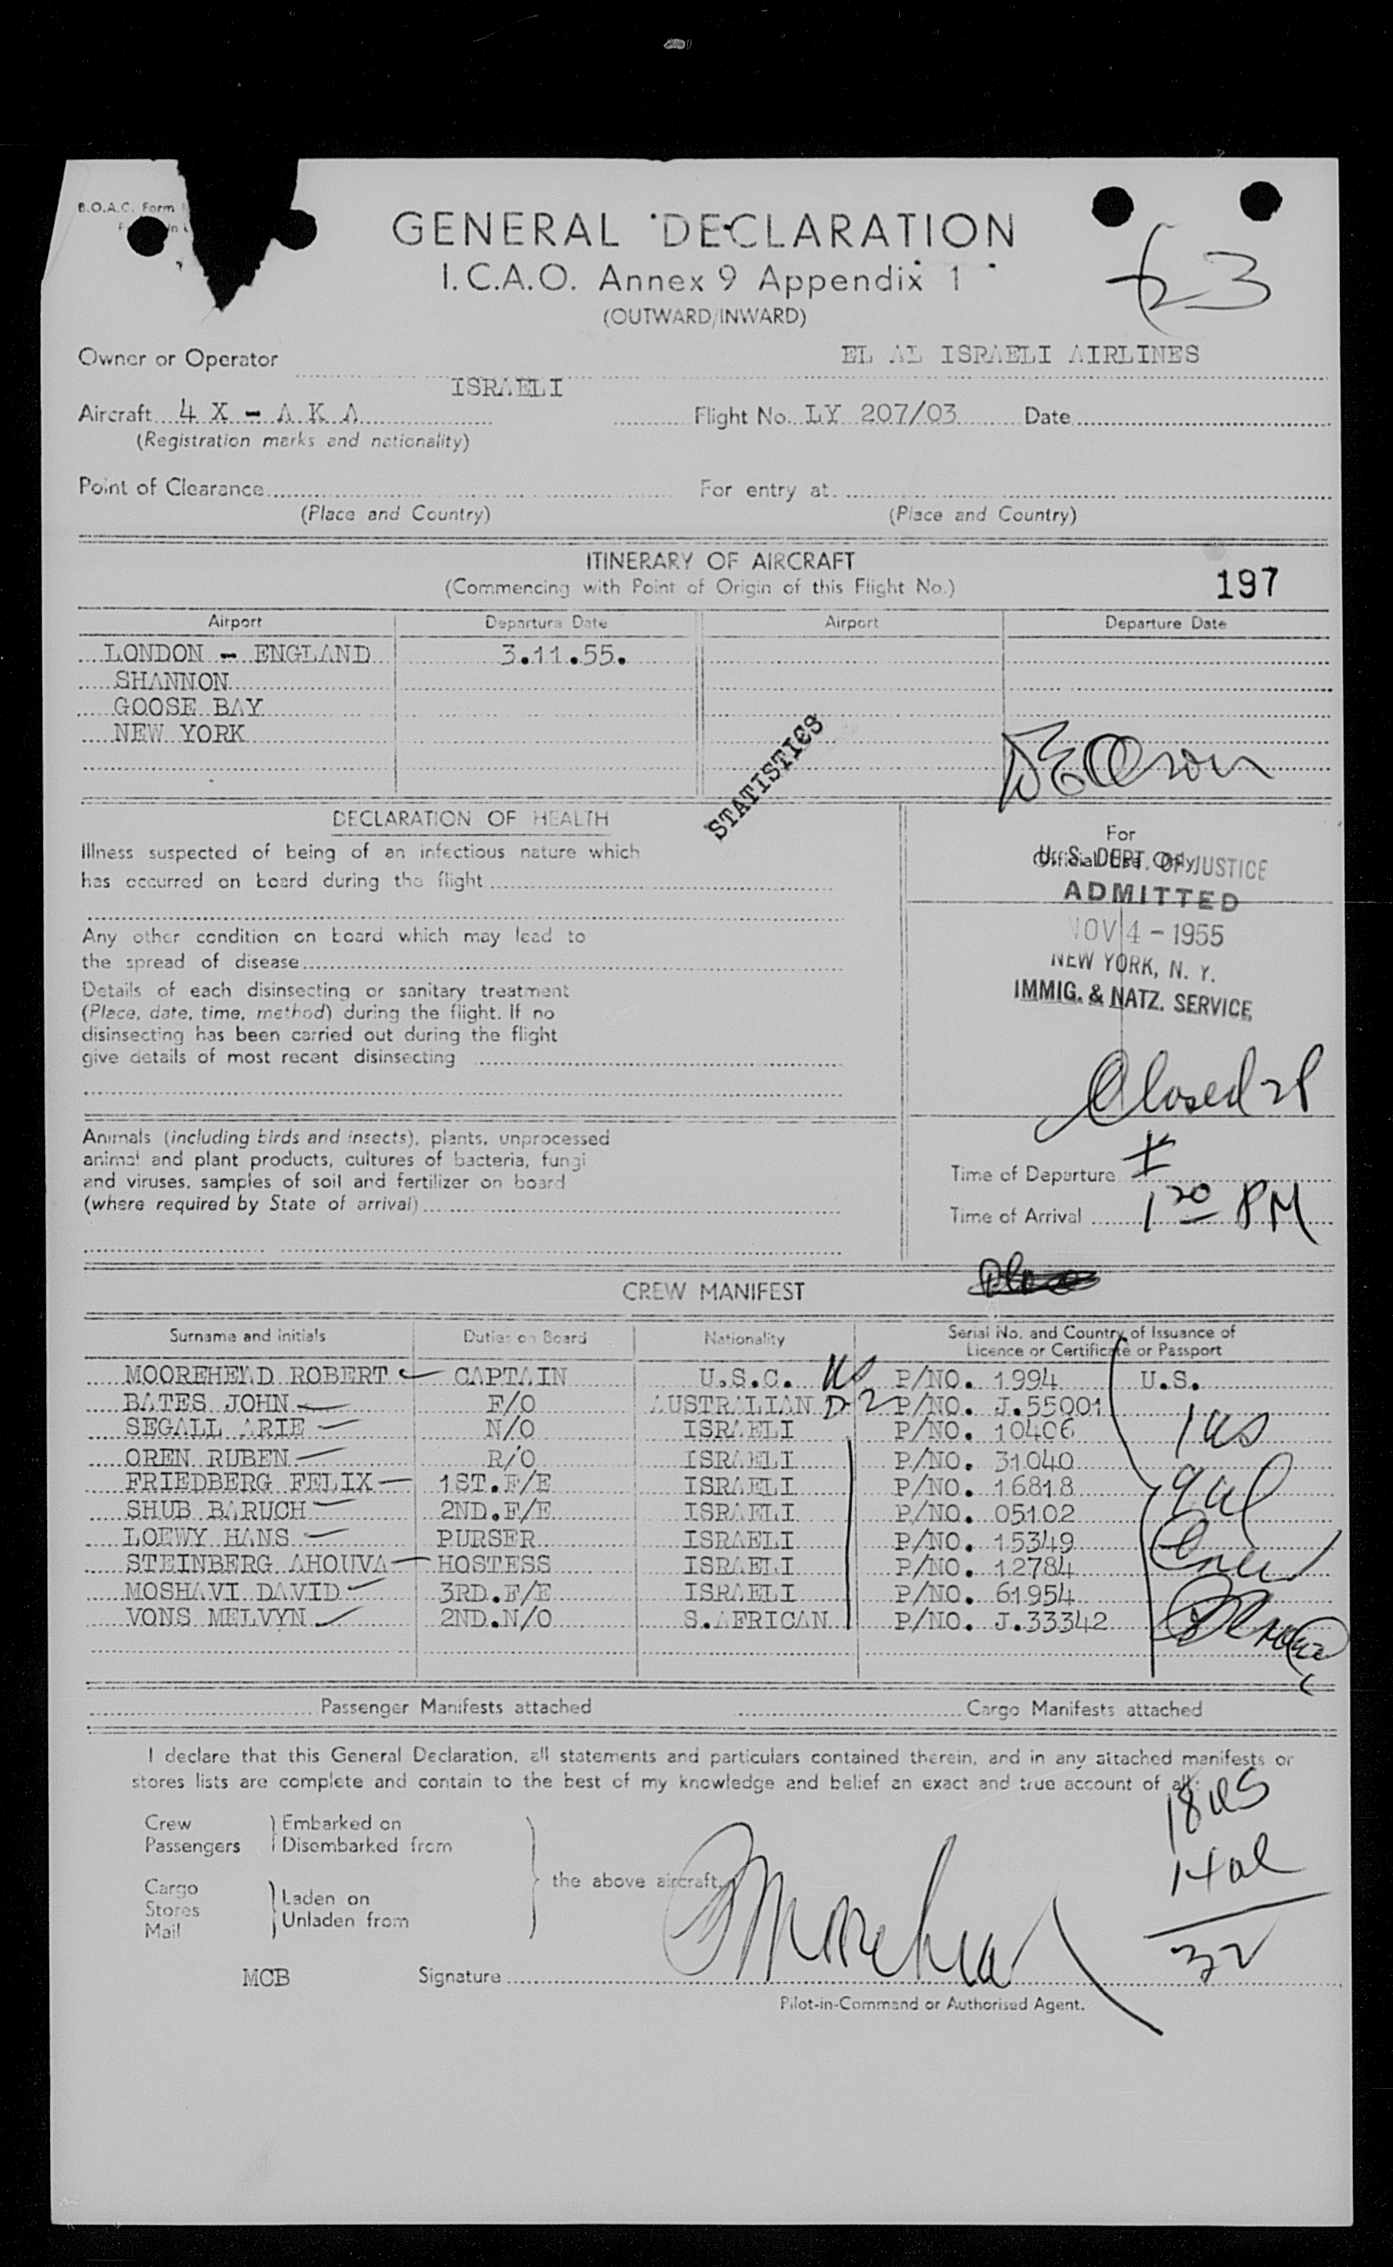 B.O.A.C. Form
GENERAL DECLARATION
I.C.A.O. Annex 9 Appendix 1
(OUTWARD/INWARD)
23
Owner or Operator EL AL ISRAELI AIRLINES
ISRAELI
Aircraft 4 X - A K A Flight No. LY 207/03 Date
(Registration marks and nationality)
Point of Clearance For entry at
(Place and Country) (Place and Country)
ITINERARY OF AIRCRAFT
(Commencing with Point of Origin of this Flight No.) 197
Airport Departure Date Airport Departure Date
LONDON - ENGLAND 3.11.55.
SHANNON
GOOSE BAY
NEW YORK
STATISTICS
DECLARATION OF HEALTH
Illness suspected of being of an infectious nature which
has occurred on board during the flight
Any other condition on board which may lead to
the spread of disease
Details of each disinsecting or sanitary treatment
(Place, date, time, method) during the flight. If no
disinsecting has been carried out during the flight
give details of most recent disinsecting
For
Official Use Only
U. S. DEPT. OF JUSTICE
ADMITTED
NOV 4 - 1955
NEW YORK, N. Y.
IMMIG. & NATZ. SERVICE
Closed
Animals (including birds and insects), plants, unprocessed
animal and plant products, cultures of bacteria, fungi
and viruses, samples of soil and fertilizer on board
(where required by State of arrival)
Time of Departure
Time of Arrival 1 20 PM
CREW MANIFEST
Surname and initials Duties on Board Nationality Serial No. and Country of Issuance of
Licence or Certificate or Passport
MOOREHEAD ROBERT CAPTAIN U.S.C. US P/NO. 1994 U.S.
BATES JOHN F/O AUSTRALIAN D-2 P/NO. J.55001
SEGALL ARIE N/O ISRAELI P/NO. 10406 1 US
OREN RUBEN R/O ISRAELI P/NO. 31040
FRIEDBERG FELIX 1ST.F/E ISRAELI P/NO. 16818 9 al
SHUB BARUCH 2ND.F/E ISRAELI P/NO. 05102
LOEWY HANS PURSER ISRAELI P/NO. 15349 Crew
STEINBERG AHOUVA HOSTESS ISRAELI P/NO. 12784
MOSHAVI DAVID 3RD.F/E ISRAELI P/NO. 61954
VONS MELVYN 2ND.N/O S.AFRICAN P/NO. J.33342
Passenger Manifests attached Cargo Manifests attached
I declare that this General Declaration, all statements and particulars contained therein, and in any attached manifests or
stores lists are complete and contain to the best of my knowledge and belief an exact and true account of all:
18 US
14 al
32
Crew
Passengers
Embarked on
Disembarked from
Cargo
Stores
Mail
Laden on
Unladen from
the above aircraft.
MCB Signature Moorehead
Pilot-in-Command or Authorised Agent.